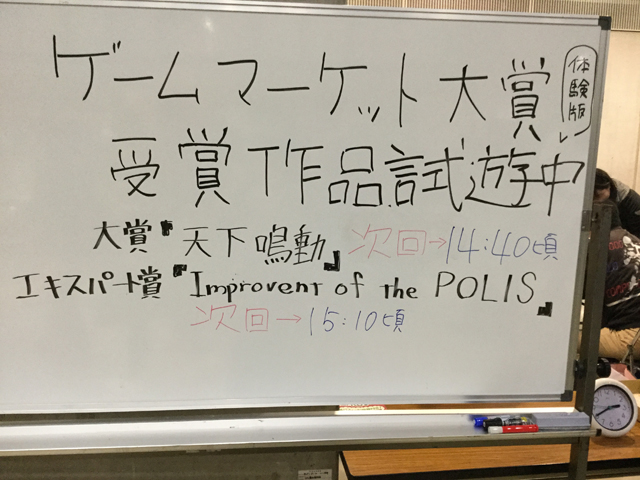 ゲームマーケット大賞
体験版
受賞作品試遊中
大賞『天下鳴動』 次回→14:40頃
エキスパート賞『Improvent of the POLIS』
次回→15:10頃